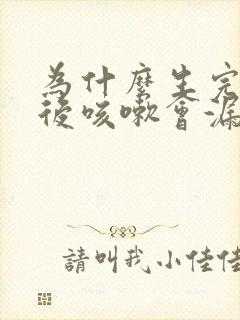 為什麼生完
後咳嗽會漏
請叫我小佳佳